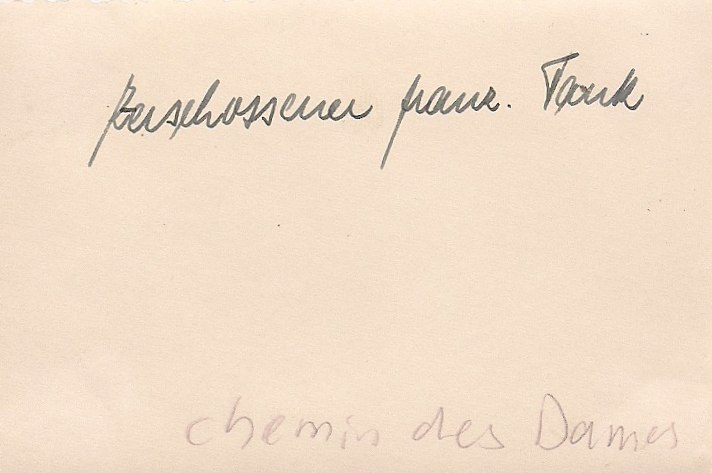 Zerschossener franz. Tank
chemin des Dames